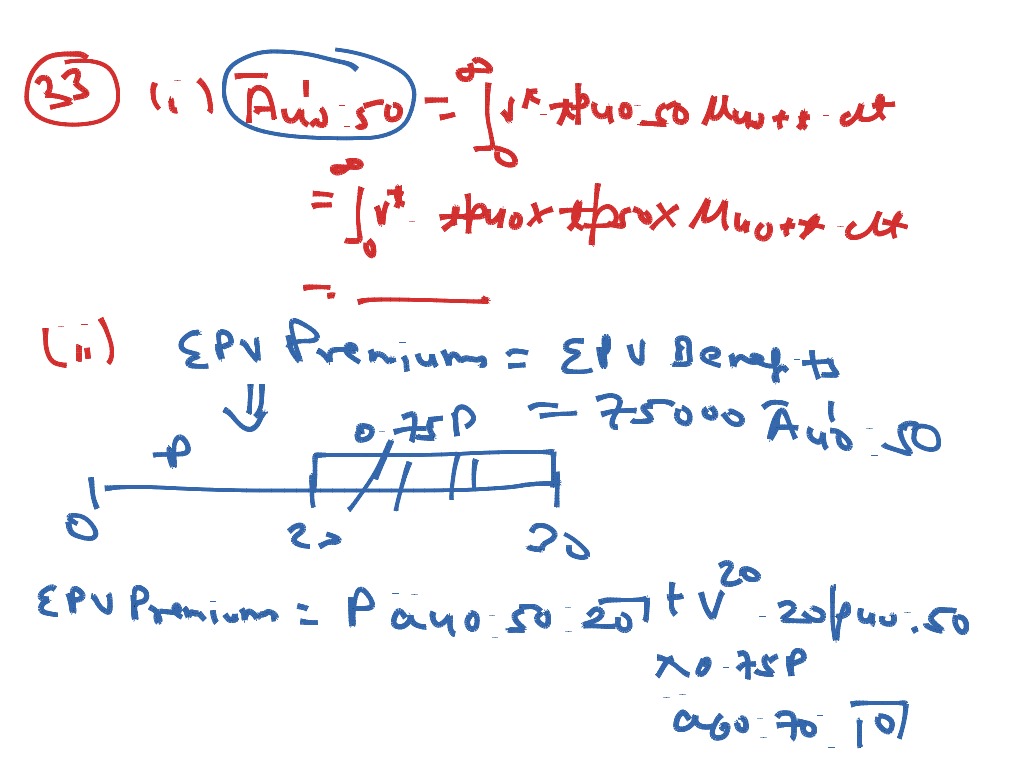 23 (i) Ā¹40:50 = ∫₀^∞ vᵗ tP40:50 μ40+t dt
= ∫₀^∞ vᵗ tP40 × tP50 × μ40+t dt
= ______
(ii) EPV Premium = EPV Benefits
= 75000 Ā¹40:50
P 0.75P
0 20 30
EPV Premium = P a40:50:20̅| + V²⁰ 20|P40:50
× 0.75P
a60:70:10̅|